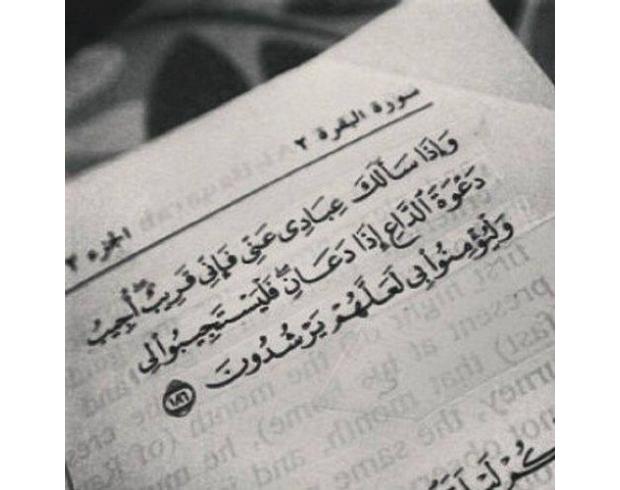 سورة البقرة ٢
الجزء ٢
وَإِذَا سَأَلَكَ عِبَادِى عَنِّى فَإِنِّى قَرِيبٌ ۖ أُجِيبُ
دَعْوَةَ ٱلدَّاعِ إِذَا دَعَانِ ۖ فَلْيَسْتَجِيبُوا۟ لِى
وَلْيُؤْمِنُوا۟ بِى لَعَلَّهُمْ يَرْشُدُونَ ١٨٦